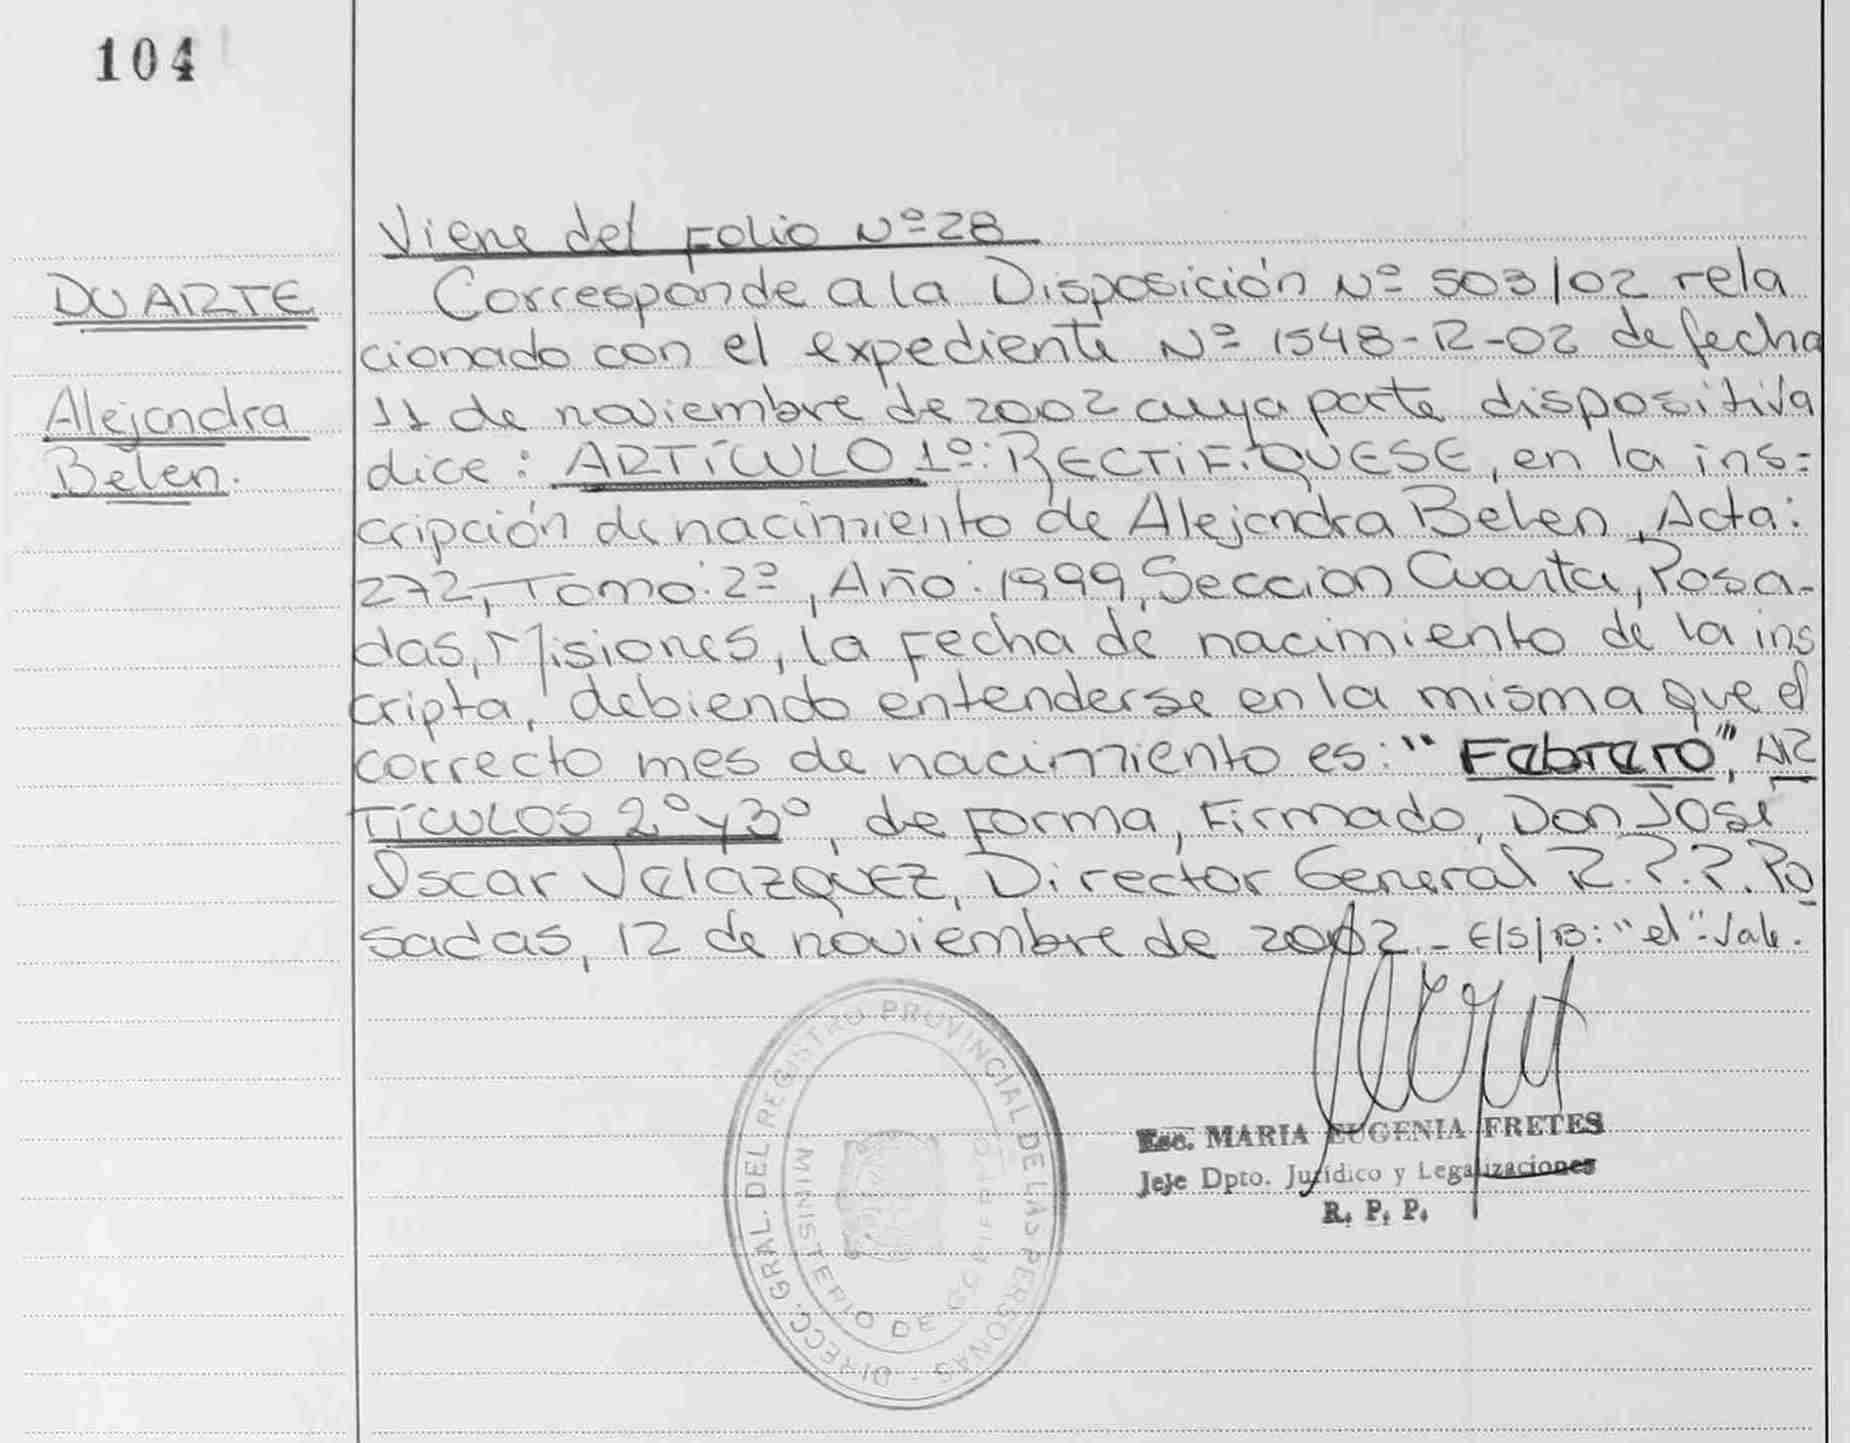 104
Viene del Folio Nº 28
DUARTE
Alejandra
Belen.
Corresponde a la Disposición Nº 503/02 rela
cionado con el expediente Nº 1548-R-02 de fecha
11 de noviembre de 2002 cuya parte dispositiva
dice: ARTÍCULO 1º: RECTIFIQUESE, en la ins-
cripción de nacimiento de Alejandra Belen, Acta:
272, Tomo: 2º, Año: 1999, Sección Cuarta, Posa-
das, Misiones, la Fecha de nacimiento de la ins
cripta, debiendo entenderse en la misma que el
correcto mes de nacimiento es: "Febrero", AR
TÍCULOS 2º y 3º, de Forma, Firmado, Don José
Oscar Velázquez, Director General R.P.P. Po
sadas, 12 de noviembre de 2002.- E/S/B: "el"-Vale.
DIRECC. GRAL. DEL REGISTRO PROVINCIAL DE LAS PERSONAS
MINISTERIO DE GOBIERNO
Esc. MARIA EUGENIA FRETES
Jefe Dpto. Jurídico y Legalizaciones
R. P. P.